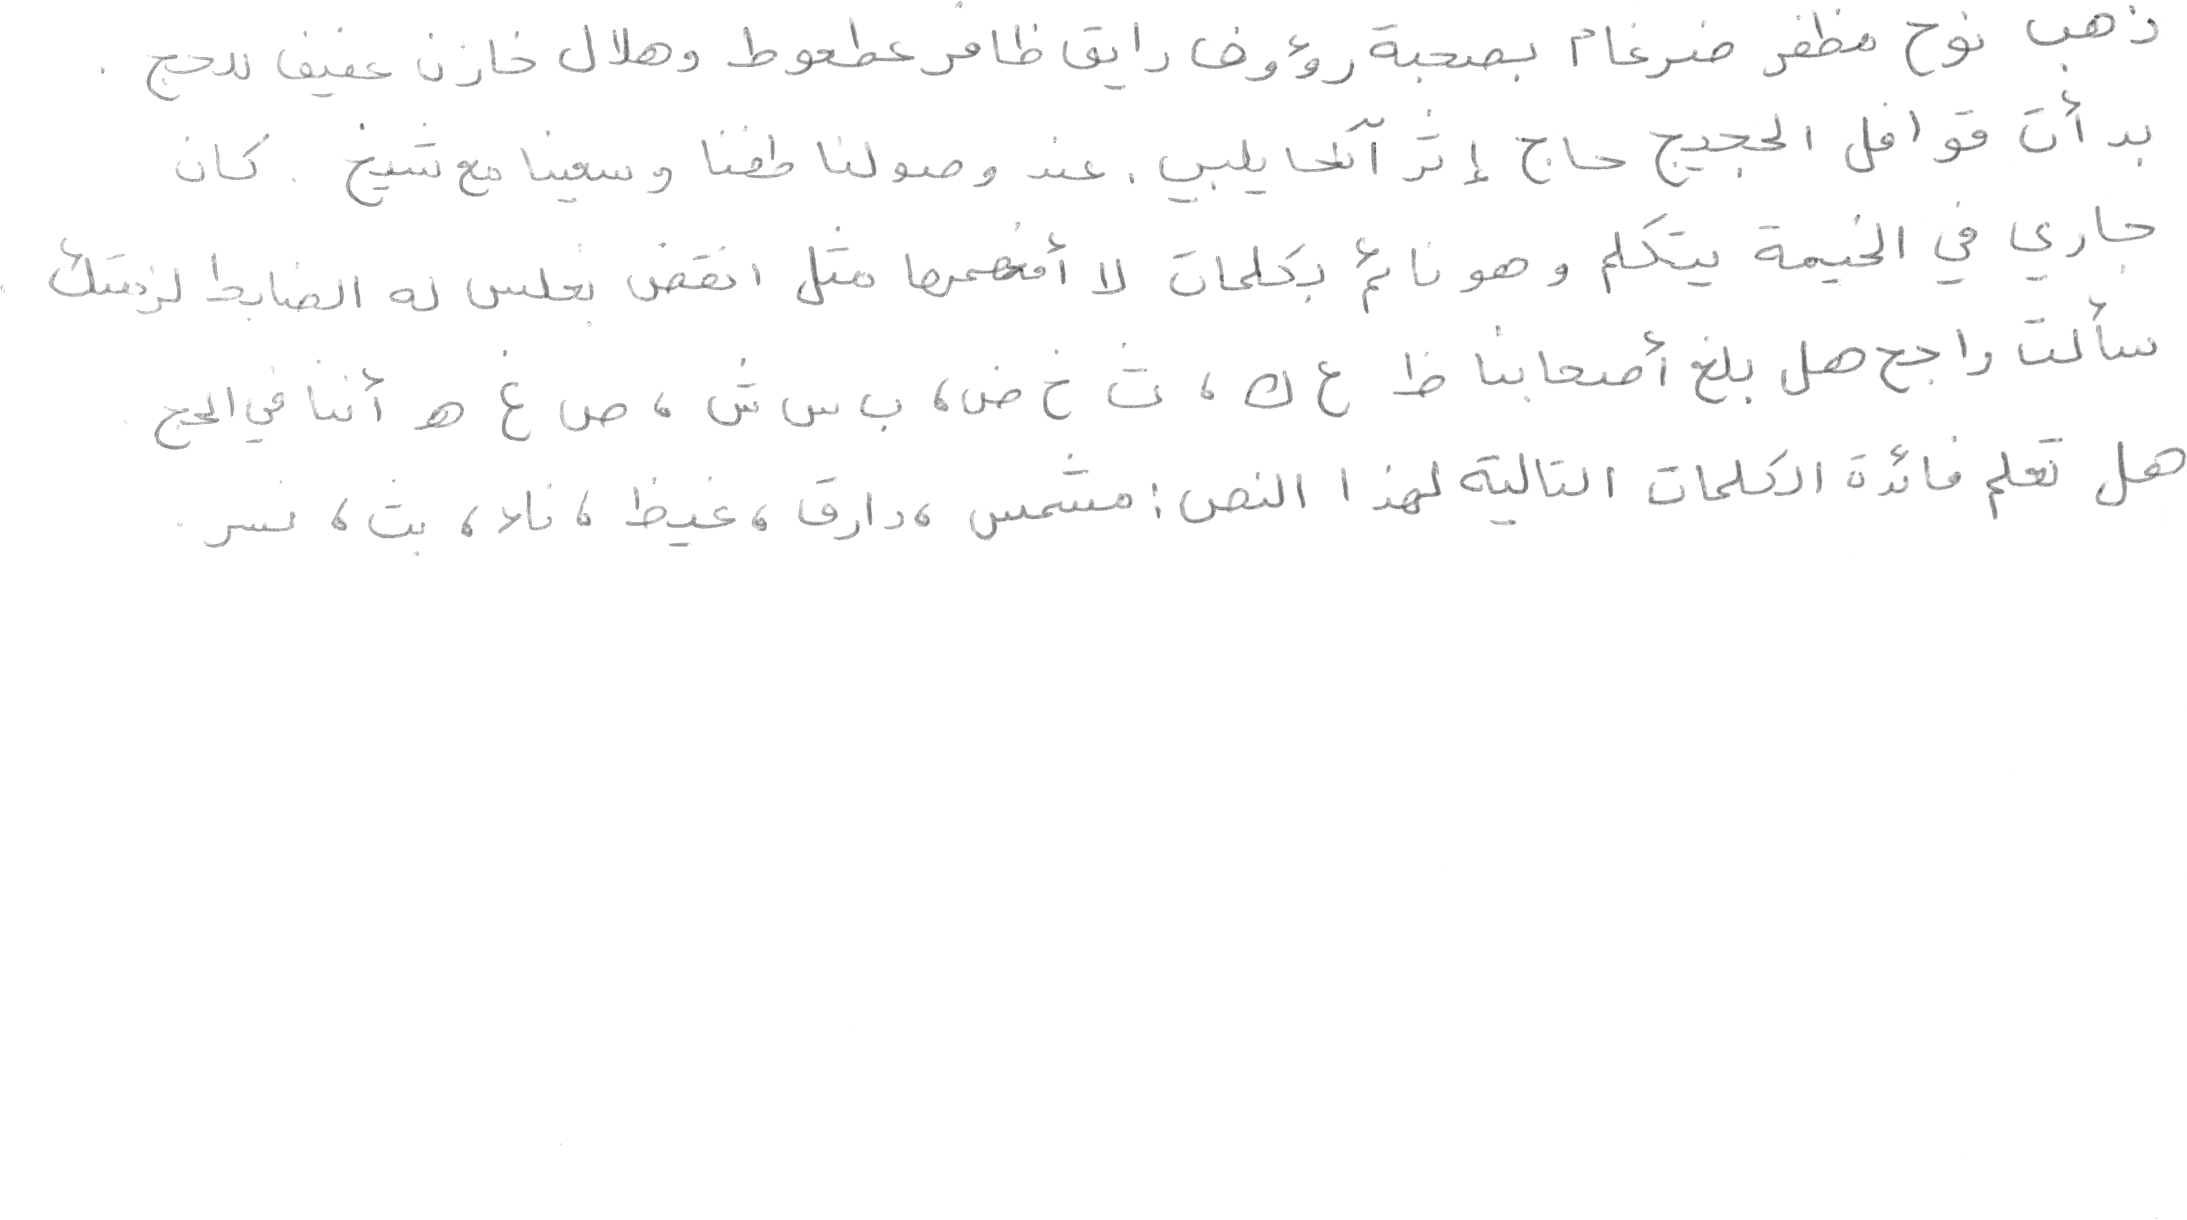 ذهب نوح مظفر ضرغام بصحبة رؤوف رايق ظافر عطعوط وهلال خازن عفيف للحج .
بدأت قوافل الحجيج حاج إثر آخر يلبي . عند وصولنا طفنا وسعينا مع شيخ . كان
جاري في الخيمة يتكلم وهو نائم بكلمات لا أفهمها مثل انقض بغلس له الضابط لزمتك .
سألت راجح هل بلغ أصحابنا ظ ع ك ، ث خ ض ، ب س ش ، ص غ ه أننا في الحج .
هل تعلم فائدة الكلمات التالية لهذا النص : مشمس ، دارق ، غيظ ، ناء ، بث ، نسر .